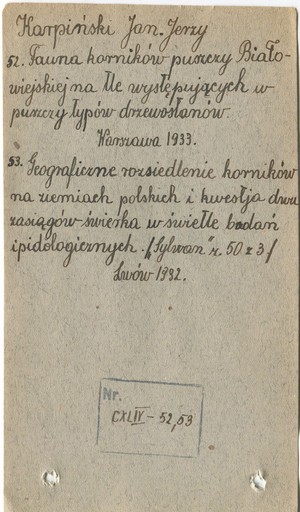 Karpiński Jan. Jerzy
52. Fauna korników puszczy Biało-
wiejskiej na tle występujących w
puszczy typów drzewostanów.
Warszawa 1933.
53. Geograficzne rozsiedlenie korników
na ziemiach polskich i kwestja dwu
zasiągów świerka w świetle badań
ipidologicznych. /„Sylwan" r. 50 z 3/
Lwów 1932.
Nr.
CXLIV – 52,53